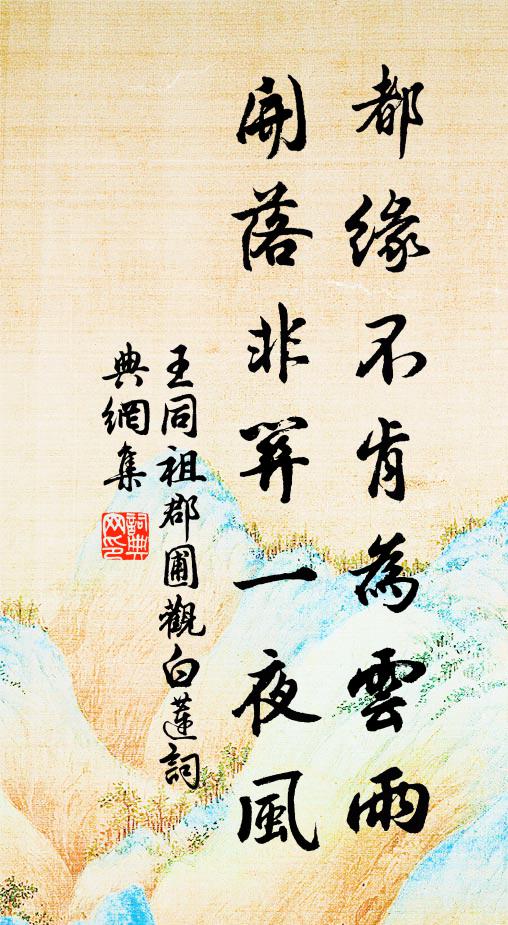 都緣不肯為雲雨
開落非關一夜風
王同祖郡圃觀白蓮詞
典網集
詞典
网印